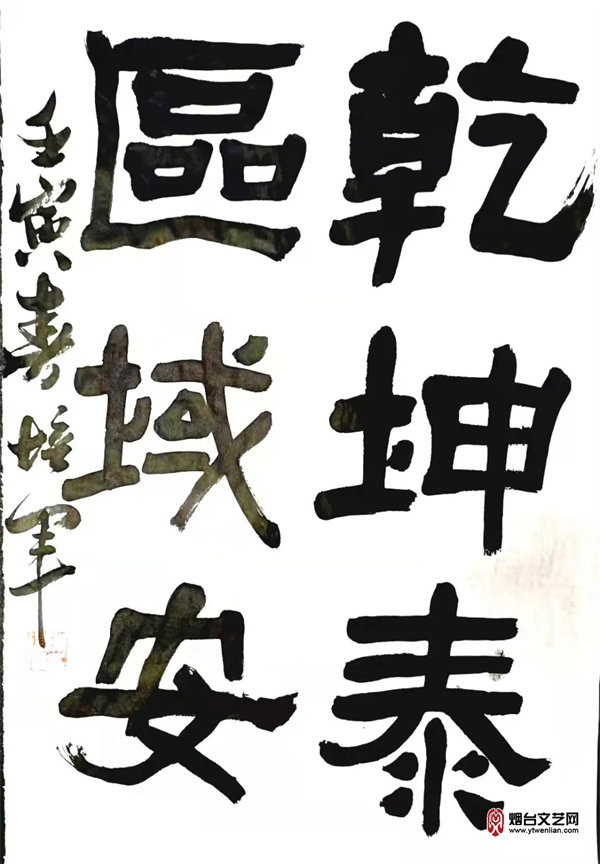 乾坤泰
區域安
壬寅春培軍
烟台文艺网
www.ytwenlian.com